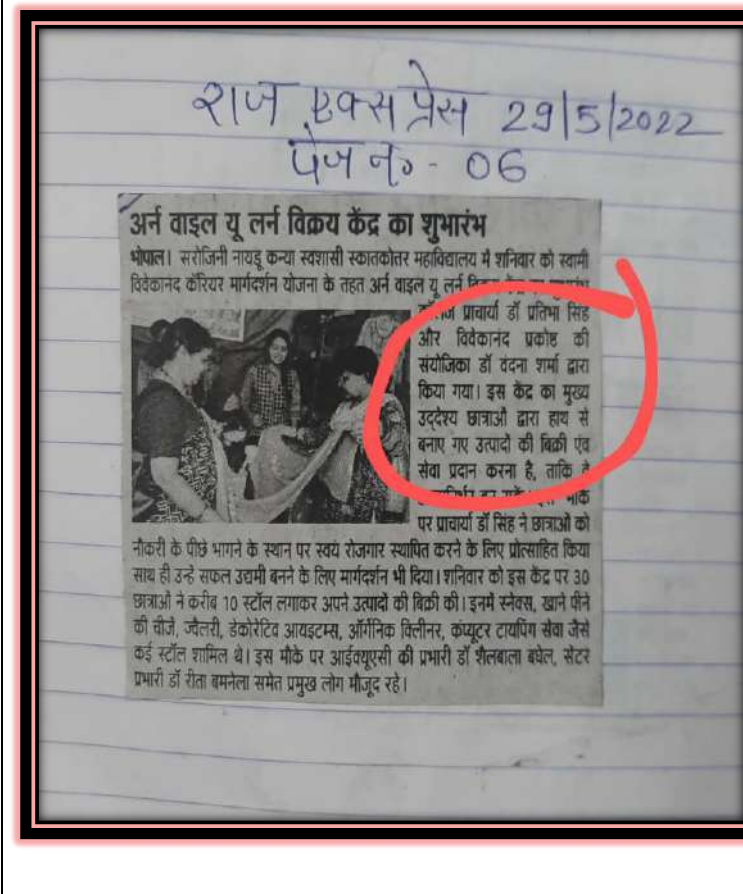 राज एक्सप्रेस 29/5/2022
पेज नं - 06
अर्न वाइल यू लर्न विक्रय केंद्र का शुभारंभ
भोपाल। सरोजिनी नायडू कन्या स्वशासी स्कातकोतर महाविद्यालय में शनिवार को स्वामी
विवेकानंद कॅरियर मार्गदर्शन योजना के तहत अर्न वाइल यू लर्न
प्राचार्या डॉ प्रतिभा सिंह
और विवेकानंद प्रकोष्ठ की
संयोजिका डॉ वंदना शर्मा द्वारा
किया गया। इस केंद्र का मुख्य
उद्देश्य छात्राओं द्वारा हाथ से
बनाए गए उत्पादों की बिक्री एंव
सेवा प्रदान करना है, ताकि वे
मौके
पर प्राचार्या डॉ सिंह ने छात्राओं को
नौकरी के पीछे भागने के स्थान पर स्वयं रोजगार स्थापित करने के लिए प्रोत्साहित किया
साथ ही उन्हे सफल उद्यमी बनने के लिए मार्गदर्शन भी दिया। शनिवार को इस केंद्र पर 30
छात्राओं ने करीब 10 स्टॉल लगाकर अपने उत्पादों की बिक्री की। इनमें स्नेक्स, खाने पीने
की चीजें, ज्वैलरी, डेकोरेटिव आयइटम्स, ऑर्गेनिक क्लिीनर, कंप्यूटर टायपिंग सेवा जैसे
कई स्टॉल शामिल थे। इस मौके पर आईक्यूएसी की प्रभारी डॉ शैलबाला बघेल, सेंटर
प्रभारी डॉ रीता बमनेला समेत प्रमुख लोग मौजूद रहे।